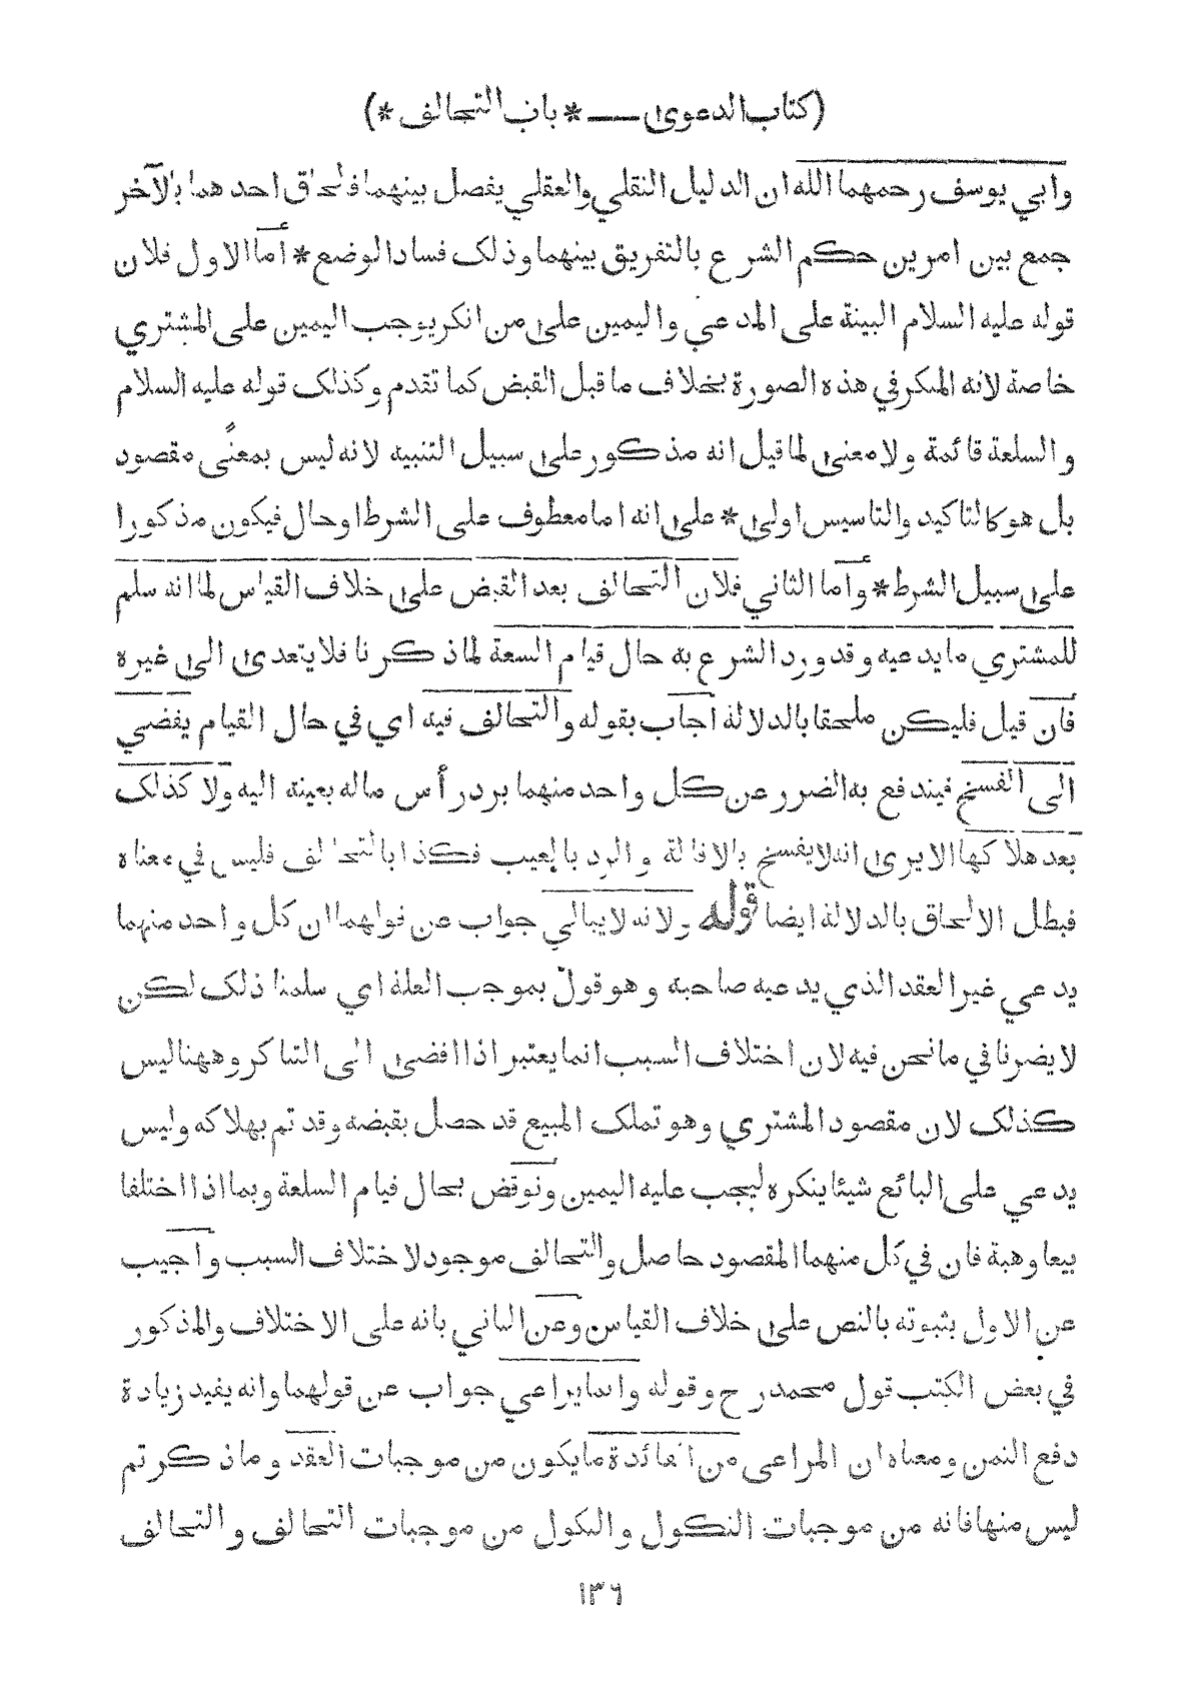 (كتاب الدعوى — * باب التحالف *)
وابي يوسف رحمهما الله ان الدليل النقلي والعقلي يفصل بينهما فالحاق احدهما بالآخر
جمع بين امرين حكم الشرع بالتفريق بينهما وذلك فساد الوضع * أما الاول فلان
قوله عليه السلام البينة على المدعي واليمين على من انكر يوجب اليمين على المشتري
خاصة لانه المنكر في هذه الصورة بخلاف ما قبل القبض كما تقدم وكذلك قوله عليه السلام
والسلعة قائمة ولا معنى لما قيل انه مذكور على سبيل التنبيه لانه ليس بمعنًى مقصود
بل هو كالتاكيد والتاسيس اولى * على انه اما معطوف على الشرط او حال فيكون مذكورا
على سبيل الشرط * وأما الثاني فلان التحالف بعد القبض على خلاف القياس لما انه سلم
للمشتري ما يدعيه وقد ورد الشرع به حال قيام السعة لما ذكرنا فلا يتعدى الى غيره
فان قيل فليكن ملحقا بالدلالة اجاب بقوله والتحالف فيه اي في حال القيام يفضي
الى الفسخ فيندفع به الضرر عن كل واحد منهما برد رأس ماله بعينه اليه ولا كذلك
بعد هلاكها الا يرى انه لا يفسخ بالاقالة والرد بالعيب فكذا بالتحالف فليس في معناه
فبطل الالحاق بالدلالة ايضا قوله ولانه لا يبالي جواب عن قولهما ان كل واحد منهما
يدعي غير العقد الذي يدعيه صاحبه وهو قولٌ بموجب العلة اي سلمنا ذلك لكن
لا يضرنا في ما نحن فيه لان اختلاف السبب انما يعتبر اذا افضى الى التناكر وههنا ليس
كذلك لان مقصود المشتري وهو تملك المبيع قد حصل بقبضه وقد تم بهلاكه وليس
يدعي على البائع شيئا ينكره ليجب عليه اليمين ونوقض بحال قيام السلعة وبما اذا اختلفا
بيعا وهبة فان في كل منهما المقصود حاصل والتحالف موجود لاختلاف السبب واجيب
عن الاول بثبوته بالنص على خلاف القياس وعن الثاني بانه على الاختلاف والمذكور
في بعض الكتب قول محمد رح وقوله وانما يراعي جواب عن قولهما وانه يفيد زيادة
دفع الثمن ومعناه ان المراعى من الفائدة ما يكون من موجبات العقد وما ذكرتم
ليس منها فانه من موجبات النكول والنكول من موجبات التحالف والتحالف
١٣٦